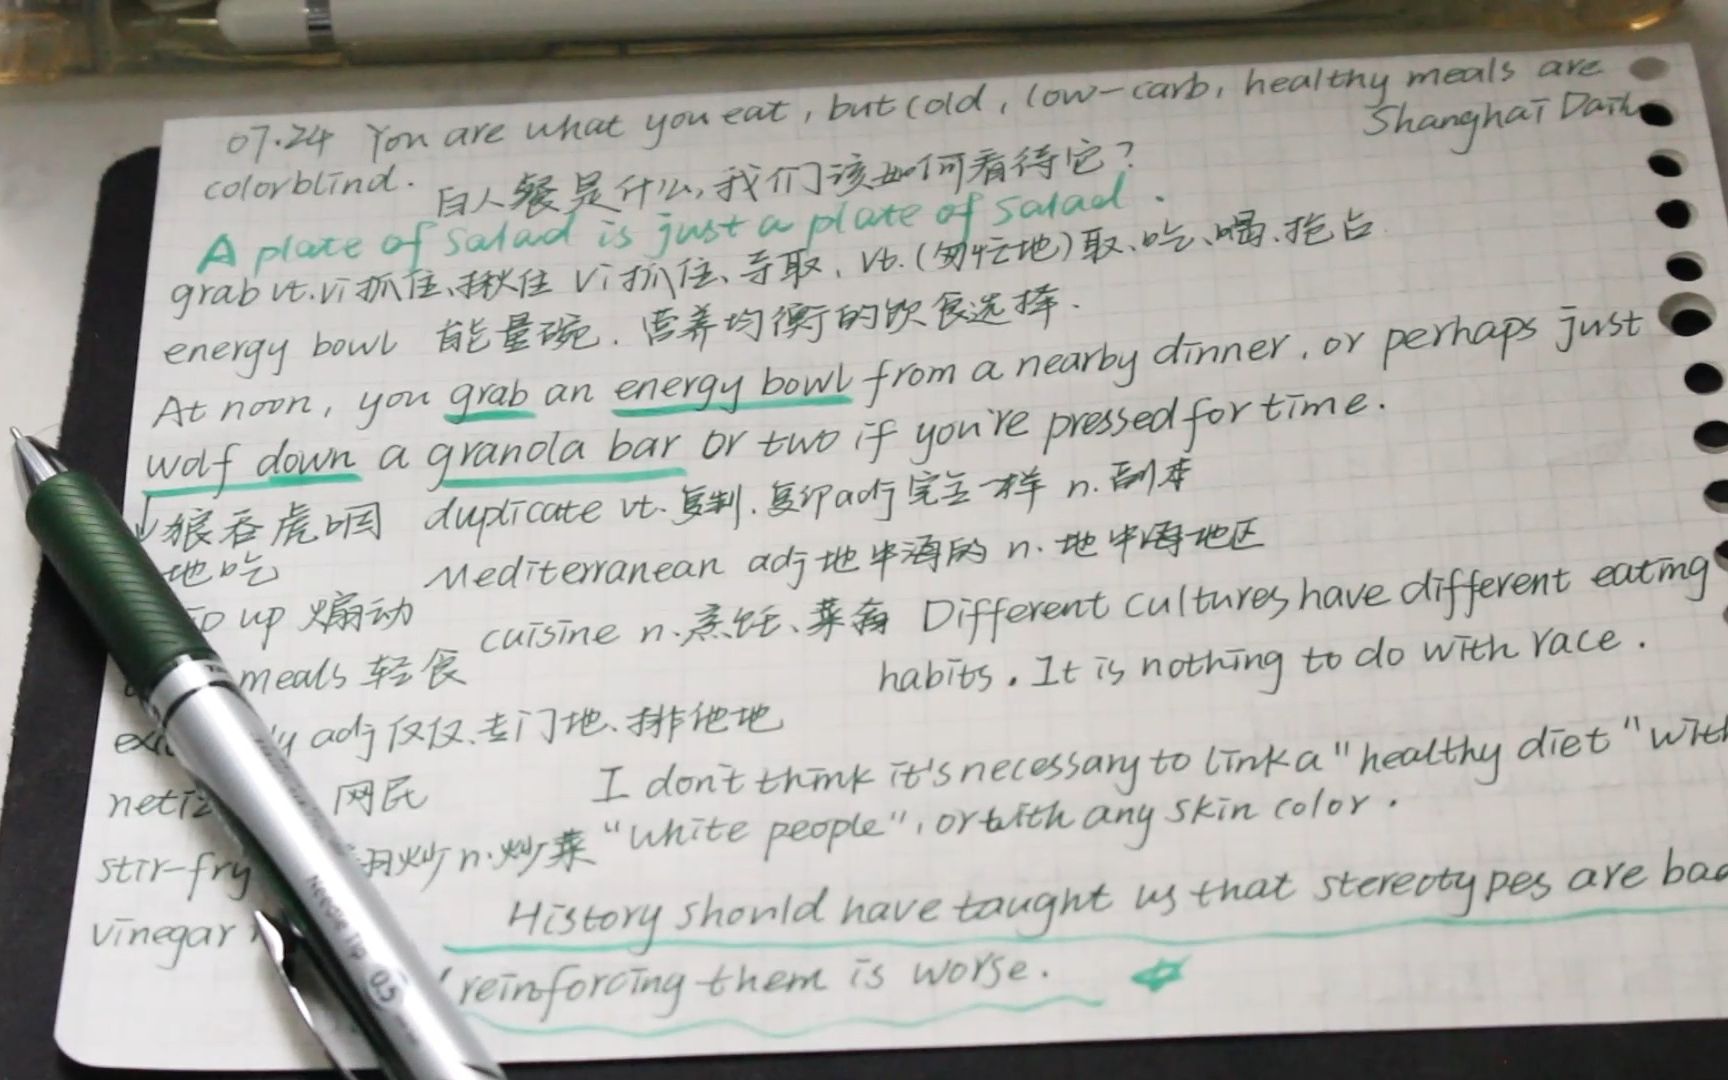 07.24 You are what you eat, but cold, low-carb, healthy meals are
Shanghai Daily
colorblind. 白人餐是什么,我们该如何看待它?
A plate of salad is just a plate of salad.
grab vt.vi 抓住、揪住 vi 抓住、夺取, vt.(匆忙地)取、吃、喝、抢占
energy bowl 能量碗. 营养均衡的饮食选择.
At noon, you grab an energy bowl from a nearby dinner, or perhaps just
wolf down a granola bar or two if you're pressed for time.
狼吞虎咽 duplicate vt.复制.复印 adj 完全一样 n.副本
地吃 Mediterranean adj 地中海的 n.地中海地区
up 煽动 cuisine n.烹饪、菜肴 Different cultures have different eating
meals 轻食 habits. It is nothing to do with race.
adj 仅仅、专门地、排他地
I don't think it's necessary to link a "healthy diet" with
网民
stir-fry 翻炒 n.炒菜 "white people", or with any skin color.
History should have taught us that stereotypes are bad
vinegar
reinforcing them is worse.
Needle Tip 0.5